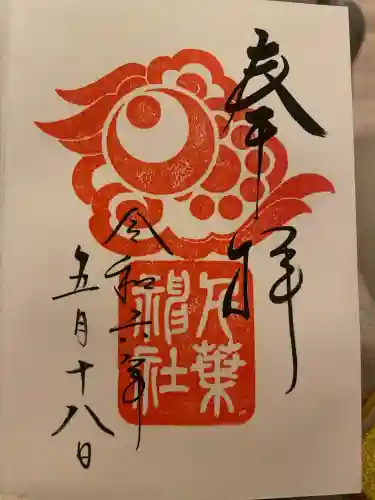 奉拝
千葉
神社
令和六年
五月十八日